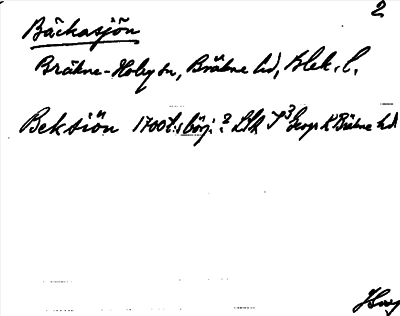 2
Bäckasjön
Bräkne-Hoby sn, Bräkne hd, Blek. l.
Beksiön 1700t:s börj.? LSA Geogr K Bräkne hd